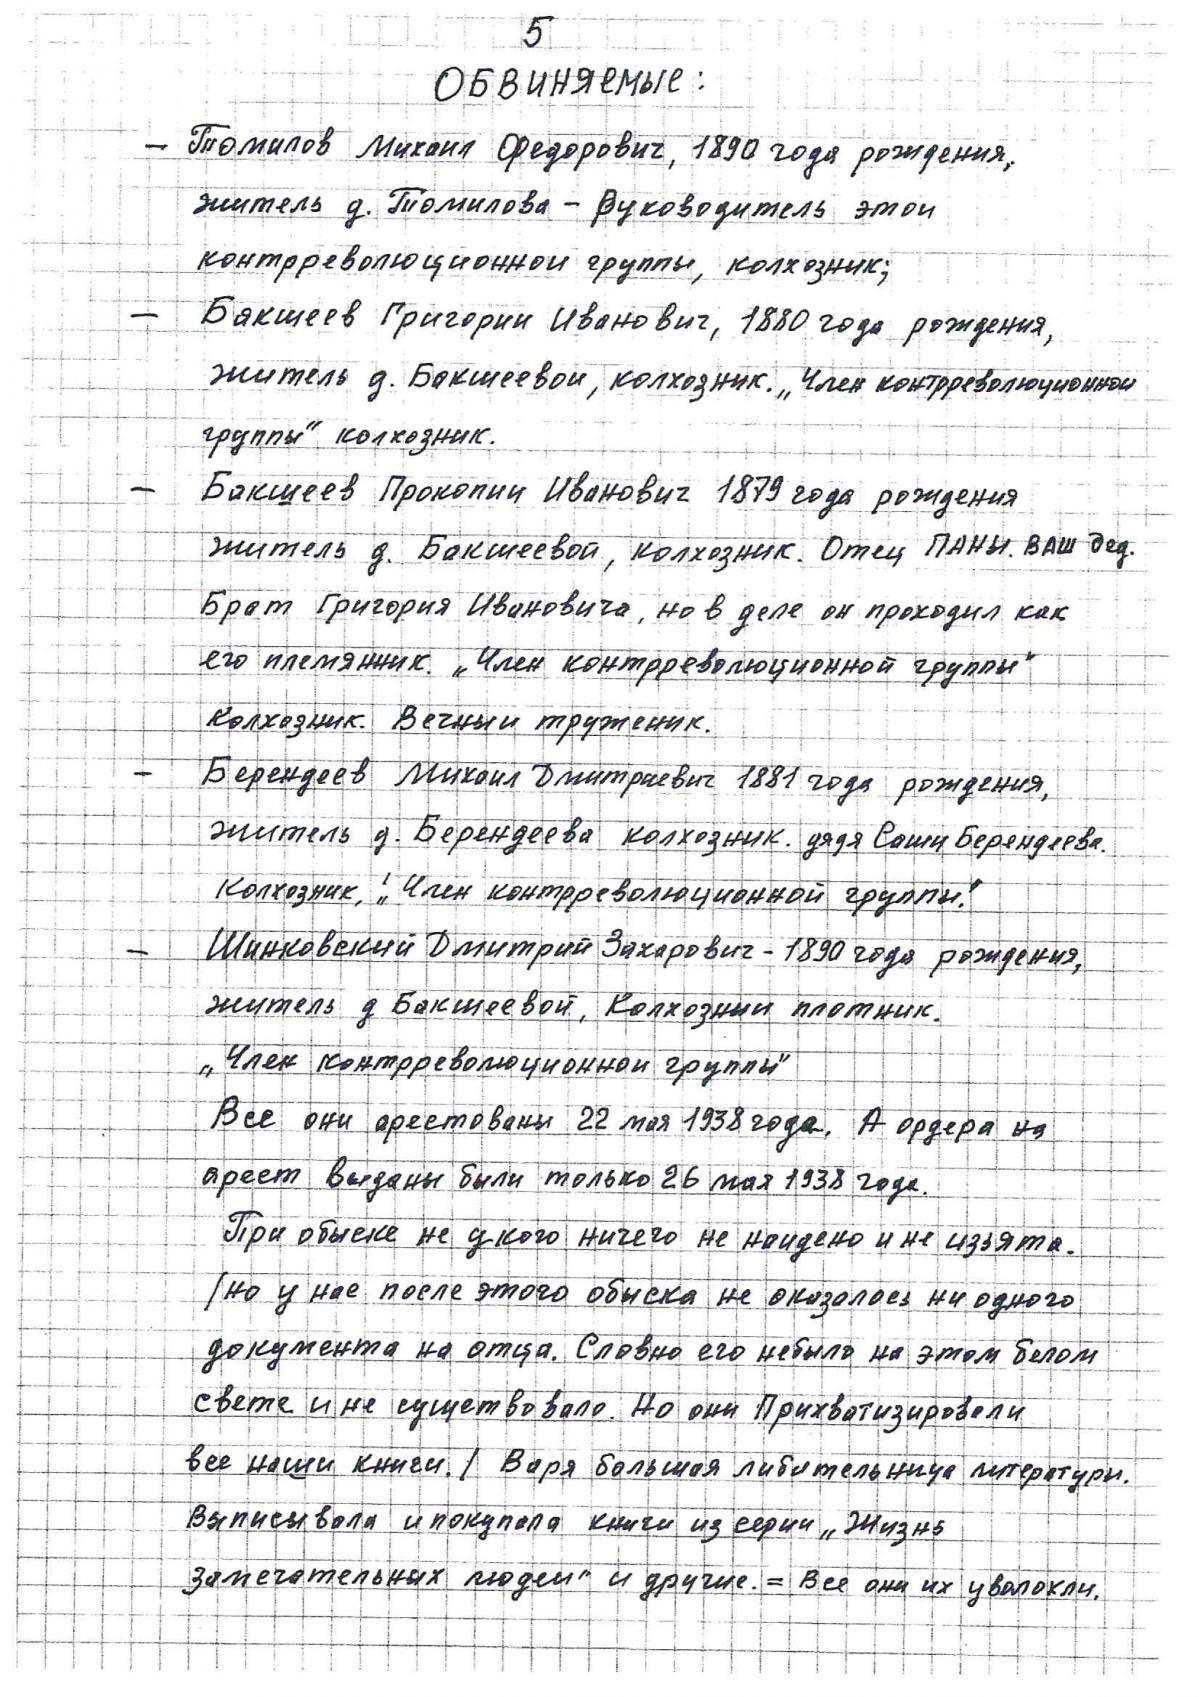 5
ОБВИНЯемые:
— Томилов Михаил Федорович, 1890 года рождения,
житель д. Томилова – Руководитель этои
контрреволюционнои группы, колхозник;
— Бакшеев Григории Иванович, 1880 года рождения,
житель д. Бакшеевои, колхозник. „Член контрреволюционнои
группы“ колхозник.
— Бакшеев Прокопии Иванович 1879 года рождения
житель д. Бакшеевой, колхозник. Отец ПАНЫ. ВАШ дед.
Брат Григория Ивановича, но в деле он проходил как
его племянник. „Член контрреволюционной группы“
колхозник. Вечныи труженик.
— Берендеев Михаил Дмитриевич 1881 года рождения,
житель д. Берендеева колхозник. дядя Саши Берендеева.
Колхозник, „Член контрреволюционной группы“.
— Шинковский Дмитрий Захарович – 1890 года рождения,
житель д Бакшеевой, Колхозныи плотник.
„Член контрреволюционнои группы“
Все они арестованы 22 мая 1938 года. А ордера на
арест выданы были только 26 мая 1938 года.
При обыске не у кого ничего не наидено и не изъята.
/но у нас после этого обыска не оказалось ни одного
документа на отца. Словно его небыло на этом белом
свете и не существовало. Но они Прихватизировали
все наши книги./ Варя большая любительница литературы.
Выписывала и покупала книги из серии „Жизнь
замечательных людеи“ и другие. = Все они их уволокли.